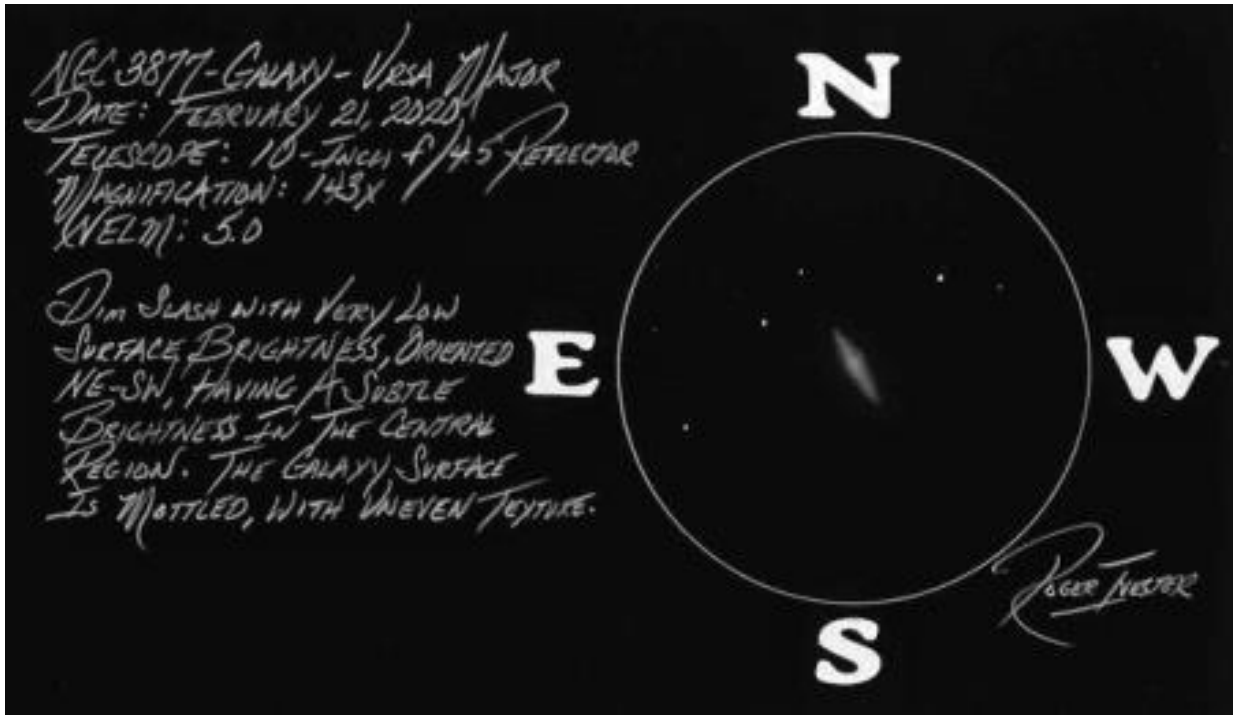 NGC 3877-GALAXY-URSA MAJOR
DATE: FEBRUARY 21, 2020
TELESCOPE: 10-INCH f/4.5 REFLECTOR
MAGNIFICATION: 143X
NELM: 5.0
DIM SLASH WITH VERY LOW
SURFACE BRIGHTNESS, ORIENTED
NE-SW, HAVING A SUBTLE
BRIGHTNESS IN THE CENTRAL
REGION. THE GALAXY SURFACE
IS MOTTLED, WITH UNEVEN TEXTURE.
N
E
W
S
ROGER IVESTER